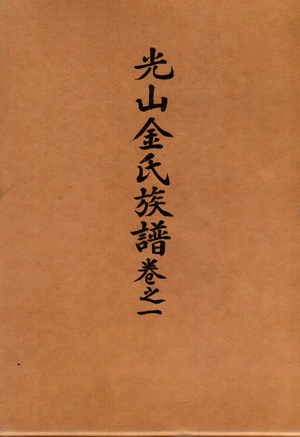 光山金氏族譜卷之一